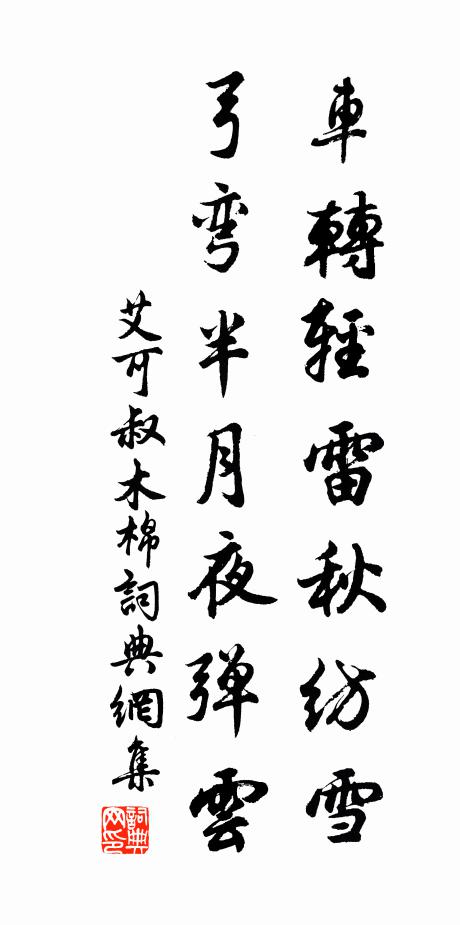 車轉輕雷秋紡雪
弓弯半月夜弹雲
艾可叔木棉詞典網集
詞典網印